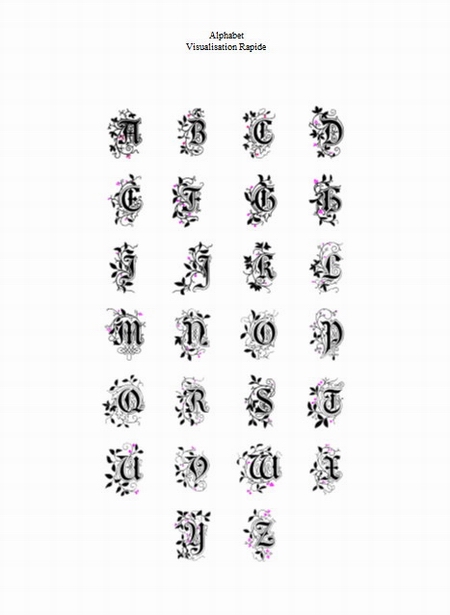 Alphabet
Visualisation Rapide
A B C D
E F G H
I J K L
M N O P
Q R S T
U V W X
Y Z